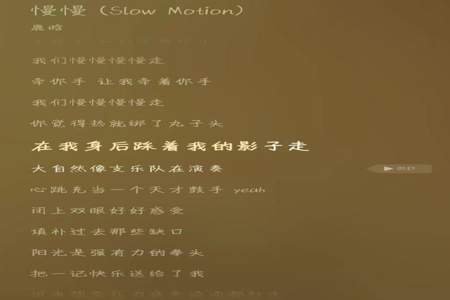 慢慢 (Slow Motion)
鹿晗
我们慢慢慢慢走
牵你手 让我牵着你手
我们慢慢慢慢走
你觉得热就绑了丸子头
在我身后踩着我的影子走
大自然像支乐队在演奏
心跳充当一个天才鼓手 yeah
闭上双眼好好感受
填补过去那些缺口
阳光是强有力的拳头
把一记快乐送给了我